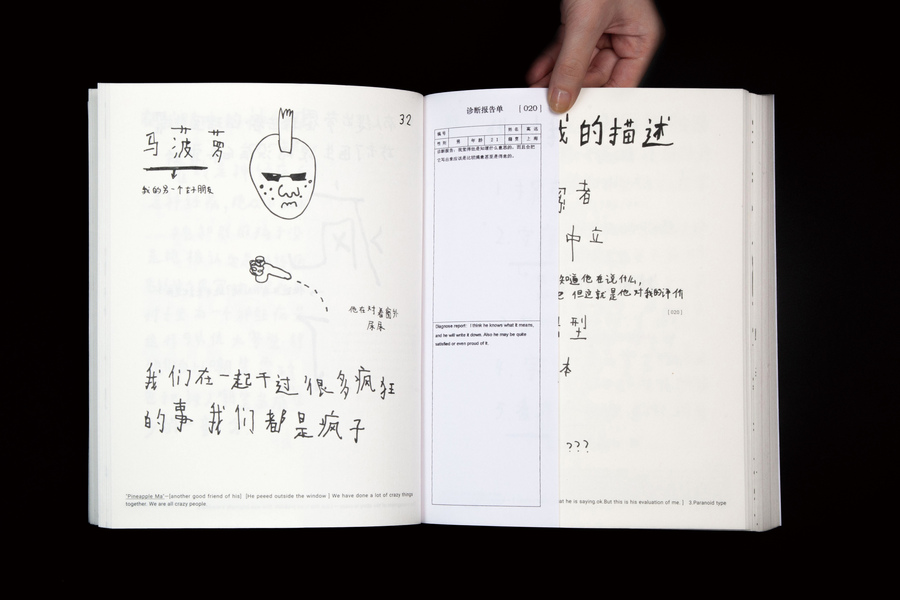 32
马 菠 萝
我的另一个好朋友
他在对着窗外
尿尿
我们在一起干过很多疯狂
的事 我们都是疯子
"Pineapple Ma"—[another good friend of his] [He peeed outside the window ] We have done a lot of crazy things
together. We are all crazy people.
诊断报告单 [ 020 ]
编号 姓名
性别 男 年龄 21 籍贯 上海
Diagnose report: I think he knows what it means,
and he will write it down. Also he may be quite
satisfied or even proud of it.
我的描述
者
中立
知道他在说什么,
但这就是他对我的评价
[ 020 ]
型
本
???
at he is saying.ok.But this is his evaluation of me. ] 3.Paranoid type